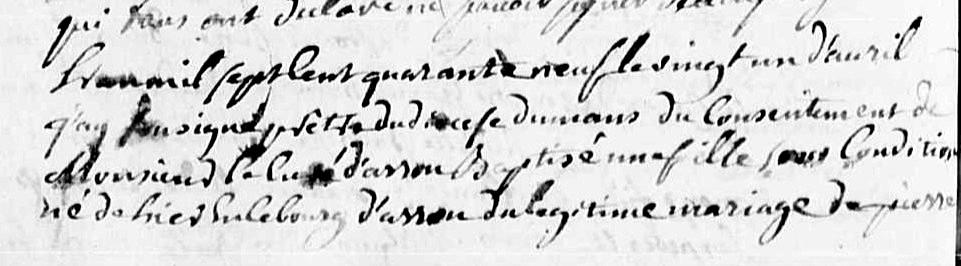 qui tous ont declaré ne pouvoir signer
L'an mil sept cent quarante neuf le vingt un d'avril
j'ay sousigné prestre du diocese du mans du Consentement de
Monsieur le Curé d'arrou Baptisé une fille sous Condition
né de hier en le bourg d'arrou du legitime mariage de pierre